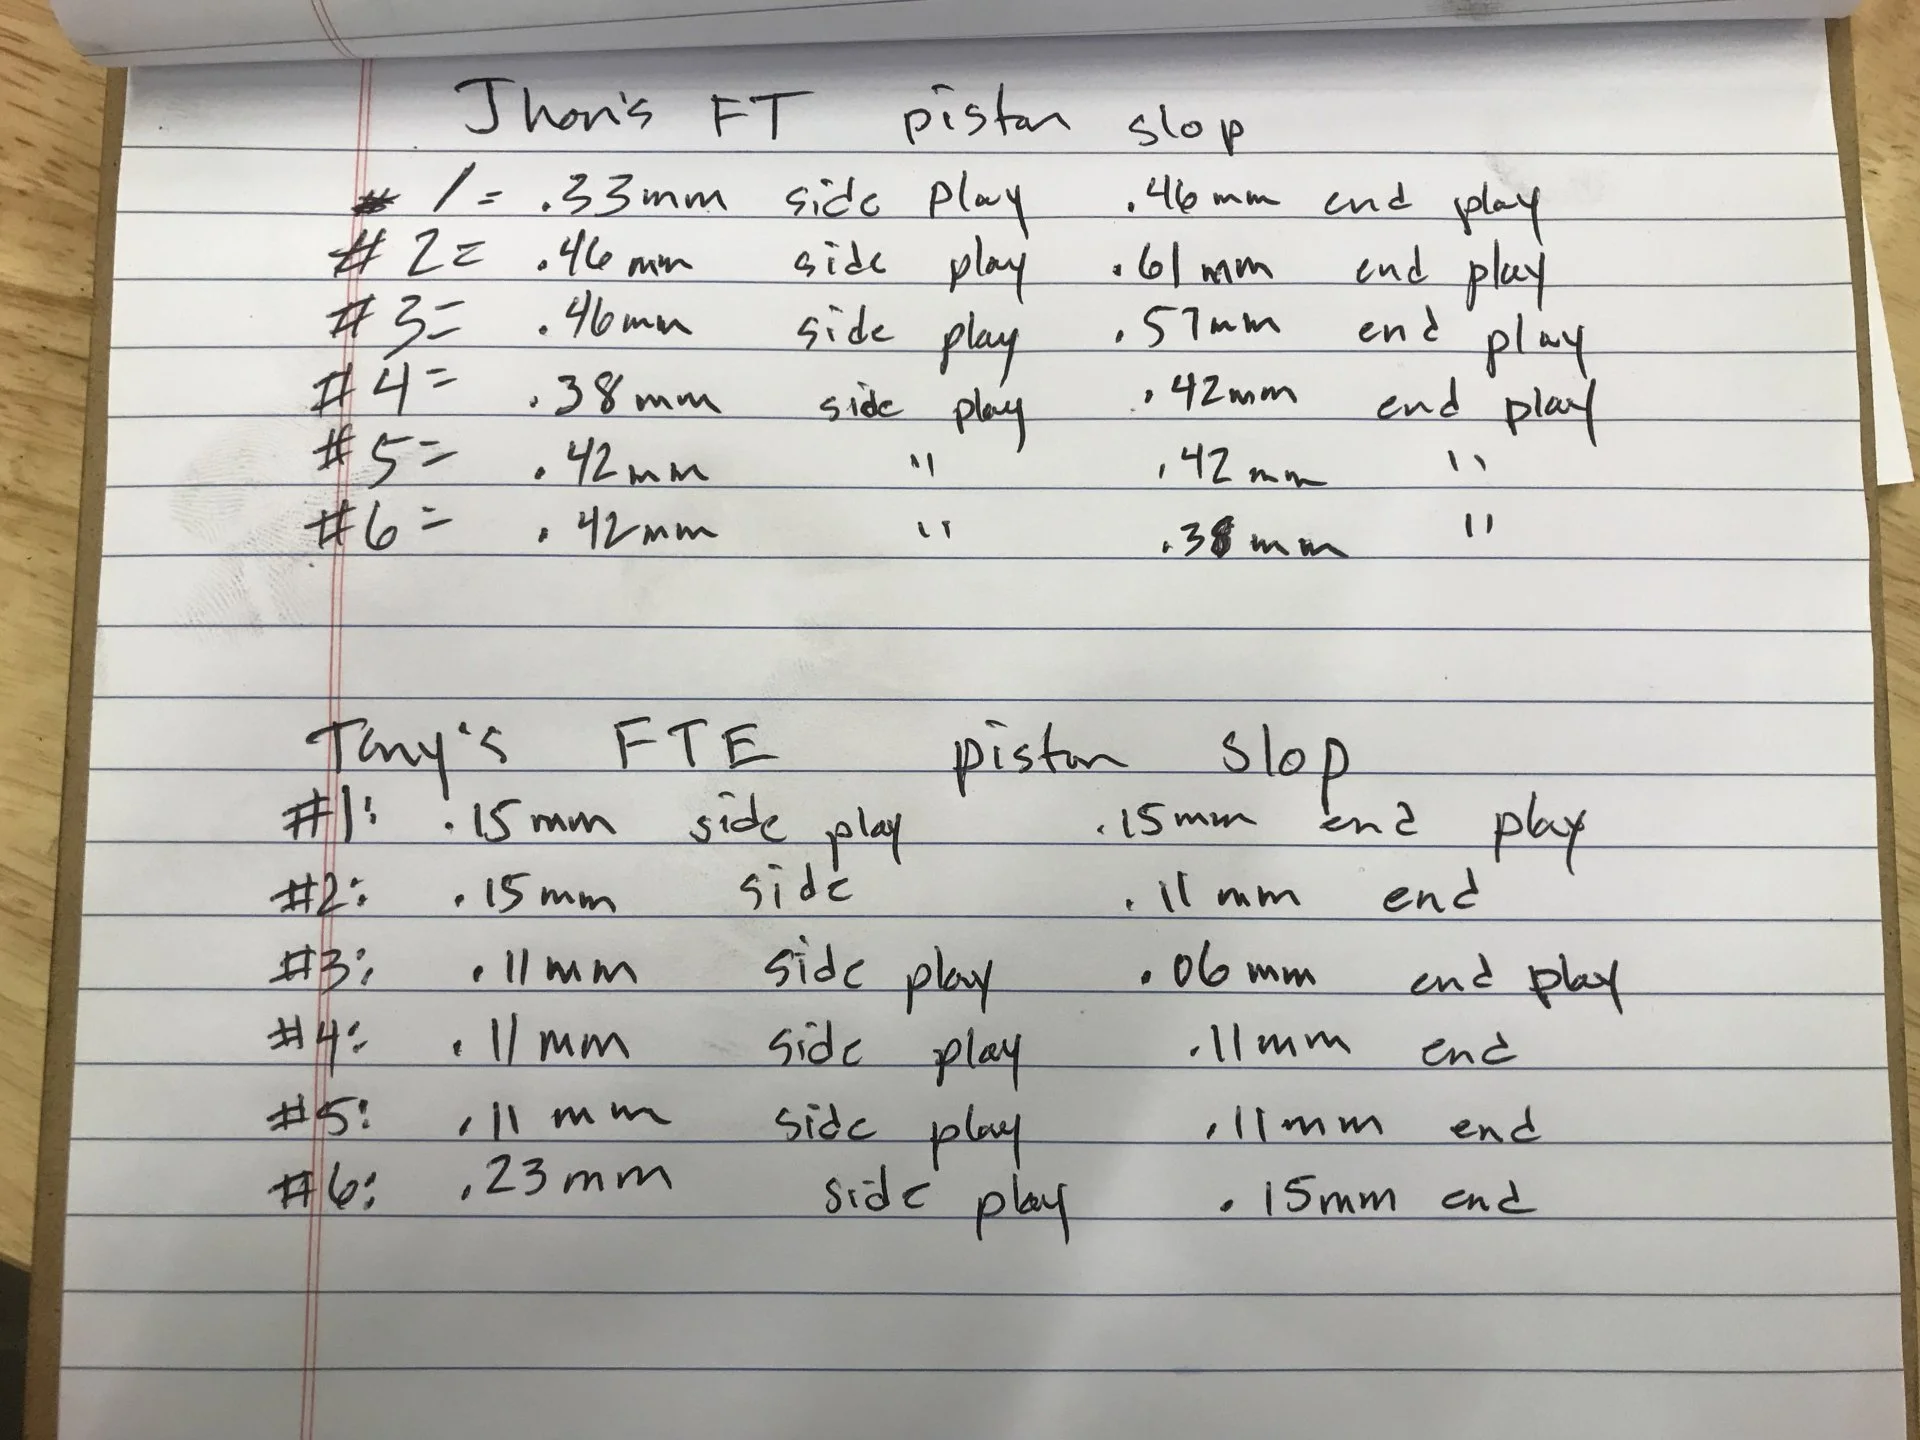 Jhon's FT piston slop
# 1 = .33mm side play .46mm end play
# 2 = .46mm side play .61mm end play
# 3 = .46mm side play .57mm end play
# 4 = .38mm side play .42mm end play
# 5 = .42mm " .42mm "
# 6 = .42mm " .38mm "
Tony's FTE piston slop
#1: .15mm side play .15mm end play
#2: .15mm side .11mm end
#3: .11mm side play .06mm end play
#4: .11mm side play .11mm end
#5: .11mm side play .11mm end
#6: .23mm side play .15mm end